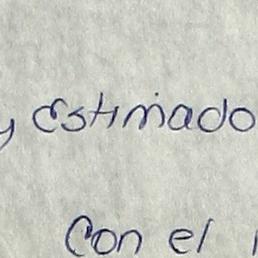 y Estimado
Con el